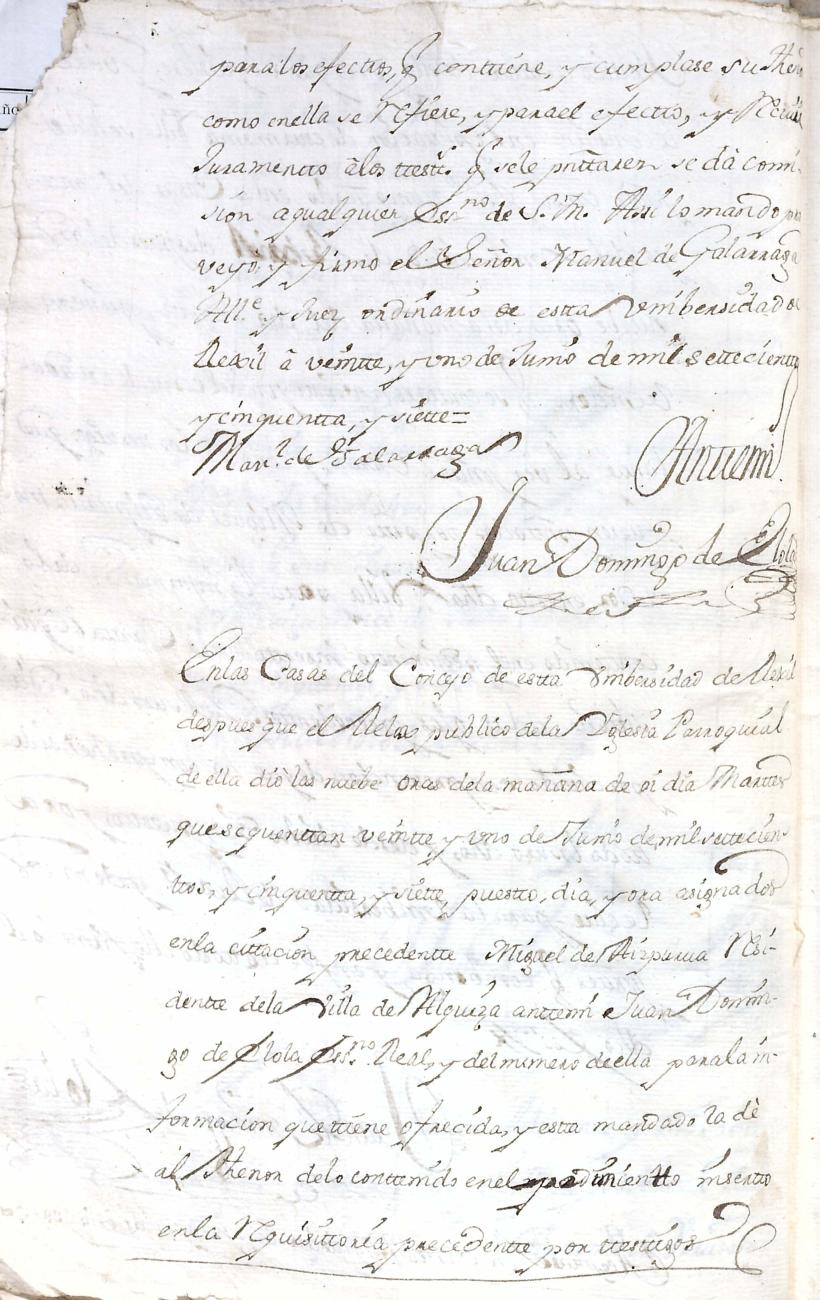 año
para los efectos, q̃ contiene, y cumplase su thenor
como en ella se Refiere, y para el efectto, y Recivir
Juramentto â los ttestt.s q̃ se le prnttaren se dà comi-
sion a qualquier Essno de S. M. Assi lo mando pro
veyo, y firmo el Señor Manuel de Galarraga
Alle y Juez ordinario de estta Vnibersidad de
Rexil â veintte, y uno de Junio de mil settecienttos
y cinquentta, y siette =
Manl de Galarraga
Anttemi
Juan Domingo de Elola
En las Casas del Concejo de estta Vnibersidad de Rexil
despues que el Relox publico de la Yglesia Parroquial
de ella diò las nuebe oras de la mañana de oi dia Marttes
que se quenttan veintte y uno de Junio de mil settecien
ttos, y cinquentta, y siette, puestto, dia, y ora asignados
en la cittacion precedentte Miguel de Aizpurua Resi-
dentte de la Villa de Alquiza anttemi Juan Domin-
go de Elola Essno Real, y del numero de ella para la in-
formacion que ttiene ofrecida, y esta mandado la dè
al thenor delo conttenido en el pedimientto insertto
en la Requisittoria precedentte por ttesttigos